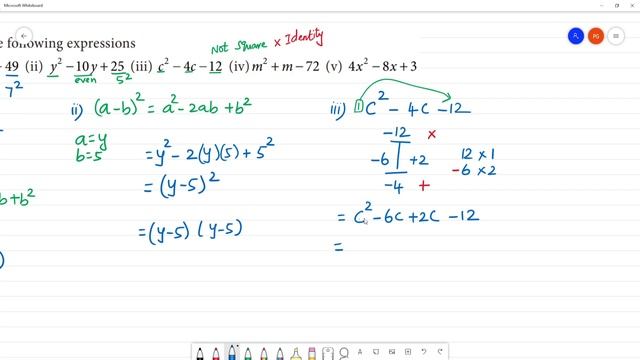 Microsoft Whiteboard
e following expressions
Not Square x Identity
49 (ii) y² − 10y + 25 (iii) c² − 4c − 12 (iv) m² + m − 72 (v) 4x² − 8x + 3
7²
even
5²
ii) (a−b)² = a² − 2ab + b²
a = y
b = 5
= y² − 2(y)(5) + 5²
= (y−5)²
= (y−5) (y−5)
b + b²
)
iii) 1 c² − 4c − 12
−12 x
−6 +2
−4 +
12 x 1
−6 x 2
= c² − 6c + 2c − 12
=
PG